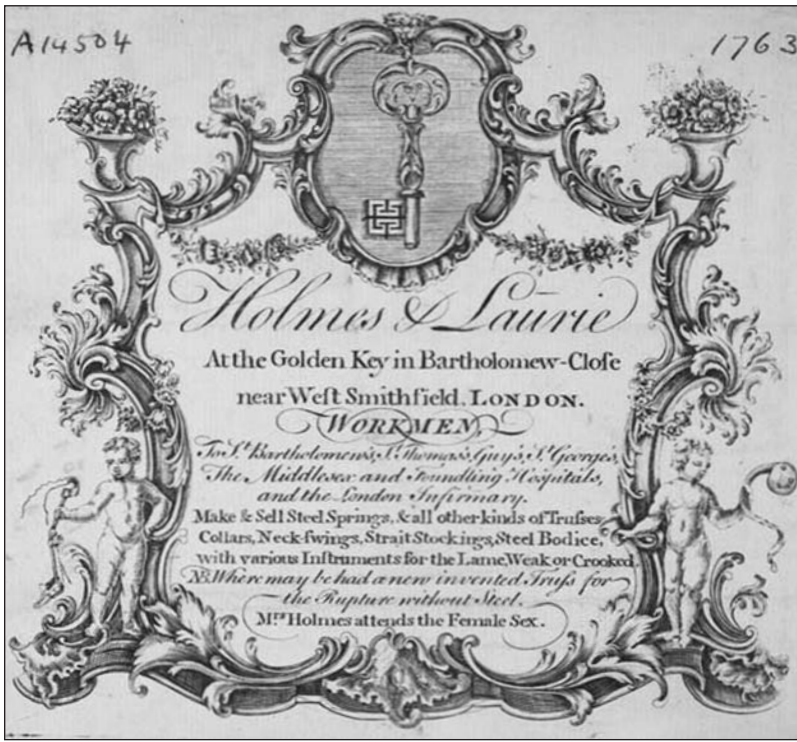 A14504
1763
Holmes & Laurie
At the Golden Key in Bartholomew-Cloſe
near Weſt Smithfield, LONDON.
WORKMEN
To St. Bartholomew's, St. Thomas's, Guy's, St. George's,
The Middlesex and Foundling Hospitals,
and the London Infirmary.
Make & Sell Steel Springs, & all other kinds of Truſses
Collars, Neck-ſwings, Strait Stockings, Steel Bodice,
with various Inſtruments for the Lame, Weak or Crooked.
NB. Where may be had a new invented Truſs for
the Rupture without Steel.
Mrs. Holmes attends the Female Sex.